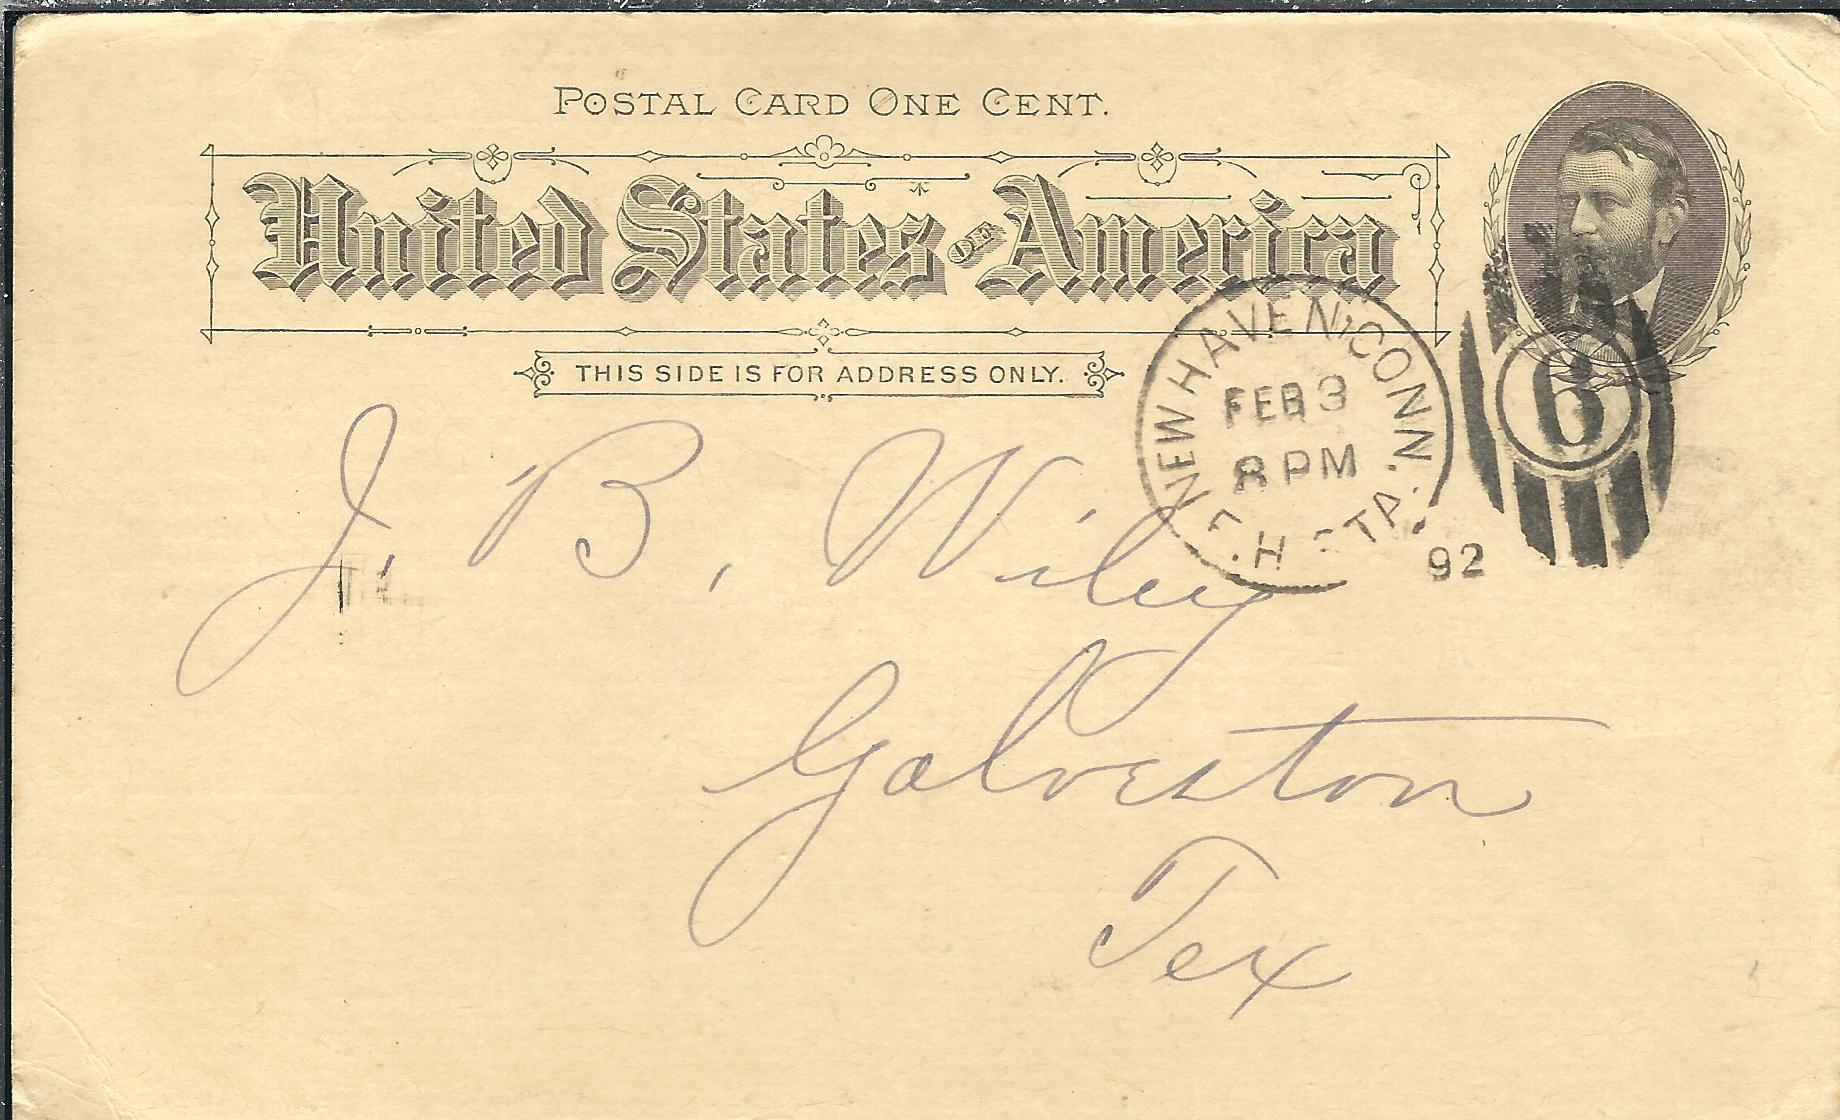 POSTAL CARD ONE CENT.
United States OF America
THIS SIDE IS FOR ADDRESS ONLY.
NEW HAVEN, CONN.
FEB 3
8 PM
STA.
92
6
J. B. Wiley
Galveston
Tex